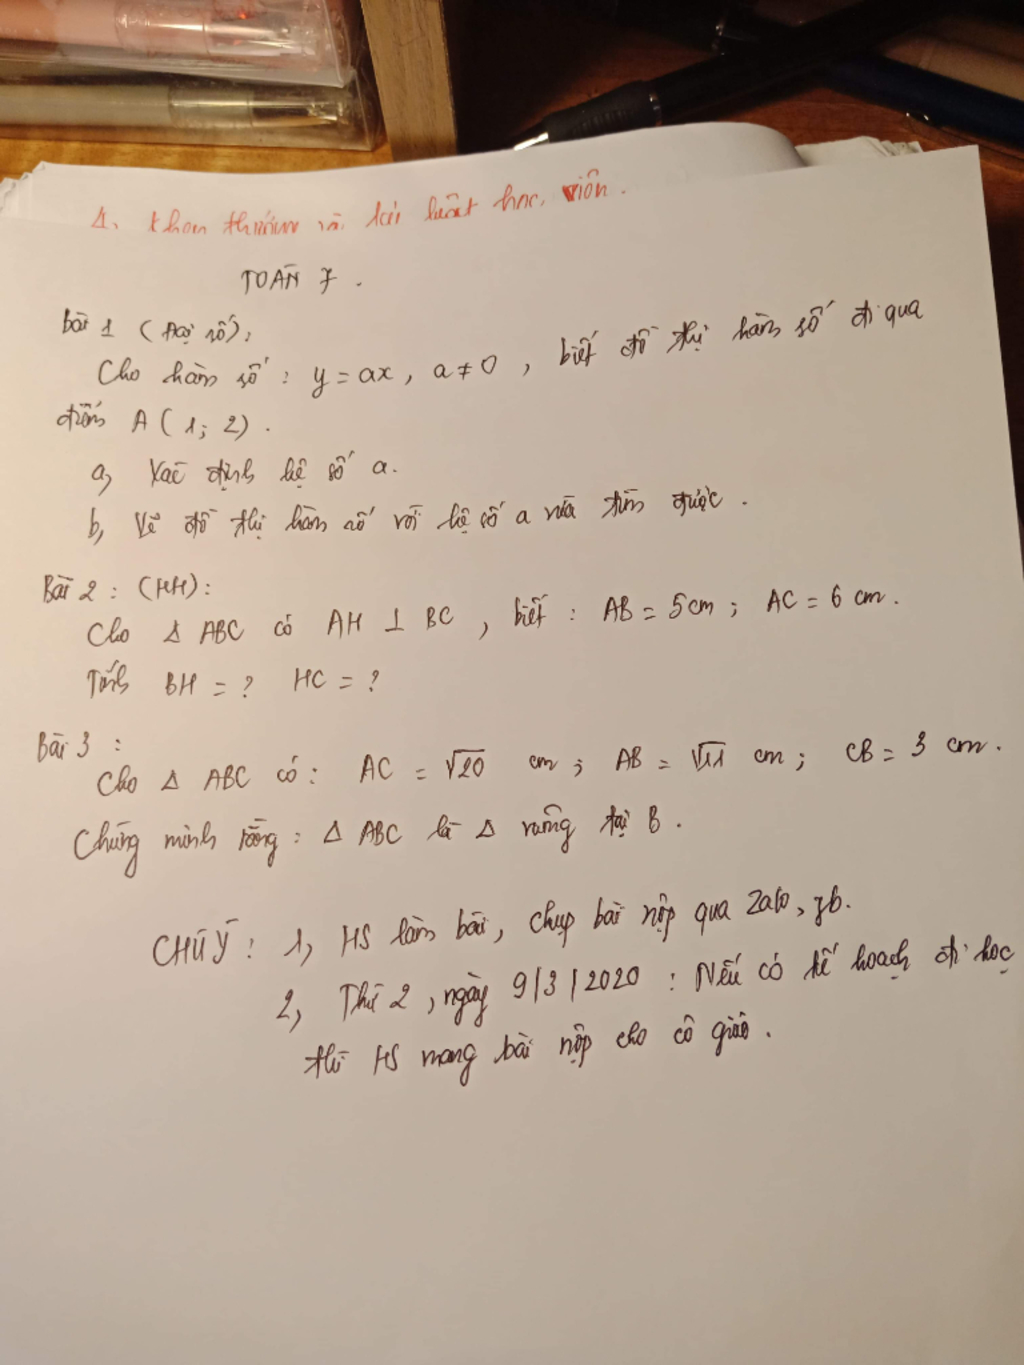 TOÁN 7.
Bài 1 (Đại số):
Cho hàm số: y = ax, a ≠ 0, biết đồ thị hàm số đi qua
điểm A(1; 2).
a, Xác định hệ số a.
b, Vẽ đồ thị hàm số với hệ số a vừa tìm được.
Bài 2: (HH):
Cho Δ ABC có AH ⊥ BC, biết: AB = 5cm; AC = 6 cm.
Tính BH = ? HC = ?
Bài 3:
Cho Δ ABC có: AC = √20 cm; AB = √11 cm; CB = 3 cm.
Chứng minh rằng: Δ ABC là Δ vuông tại B.
CHÚ Ý: 1, HS làm bài, chụp bài nộp qua Zalo,
2, Thứ 2, ngày 9/3/2020: Nếu có kế hoạch đi học
thì HS mang bài nộp cho cô giáo.